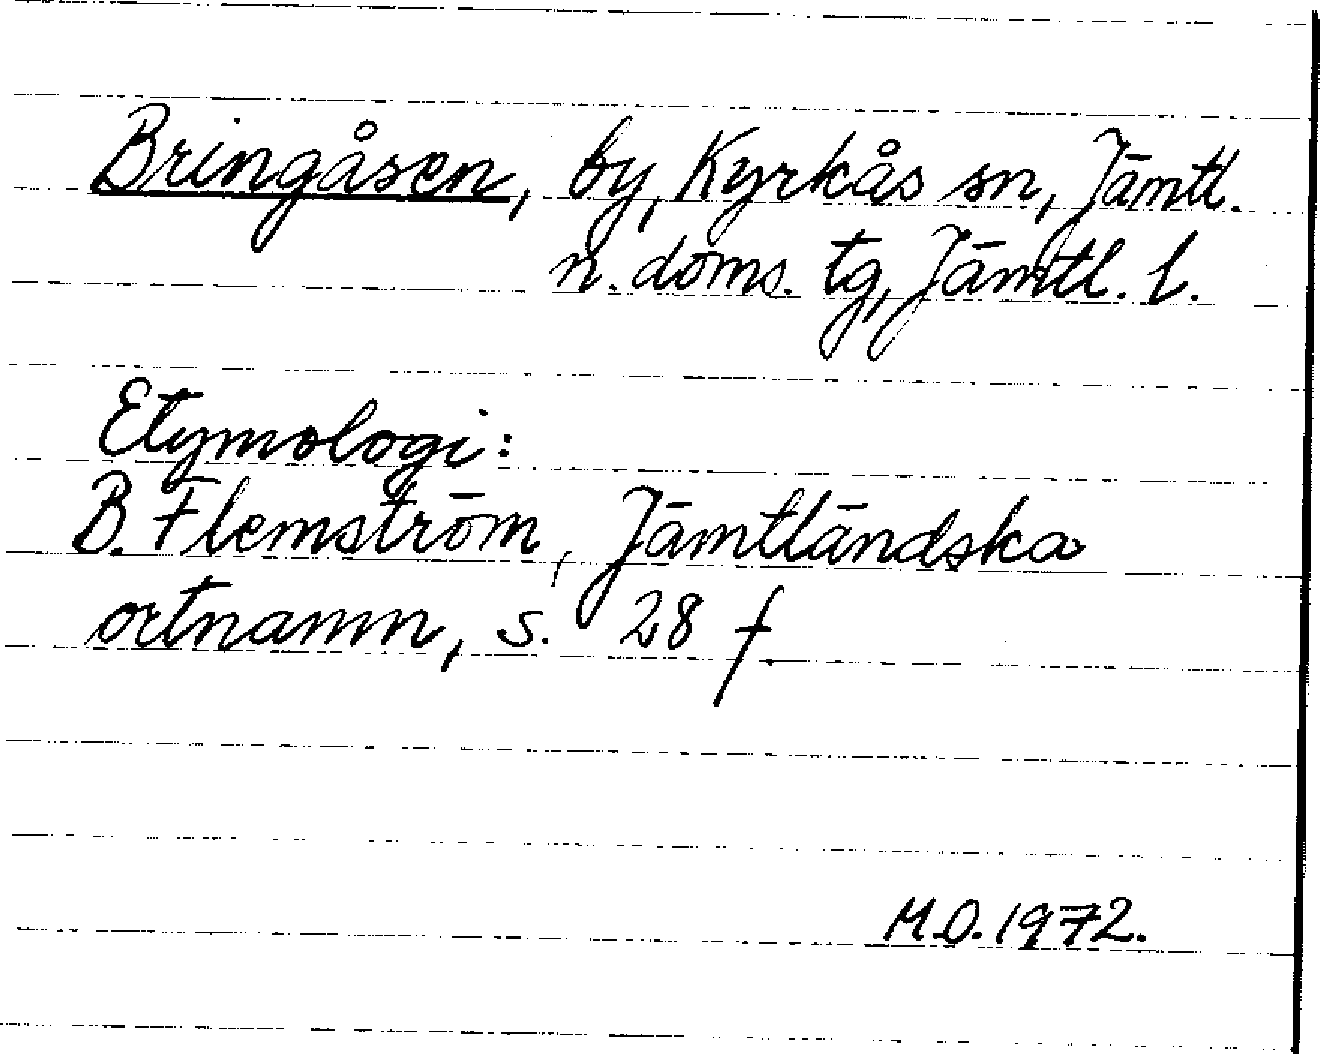 Bringåsen, by, Kyrkås sn, Jämtl.
n. doms. tg, Jämtl. l.
Etymologi:
B. Flemström, Jämtländska
ortnamn, s. 28 f.
M.O. 1972.